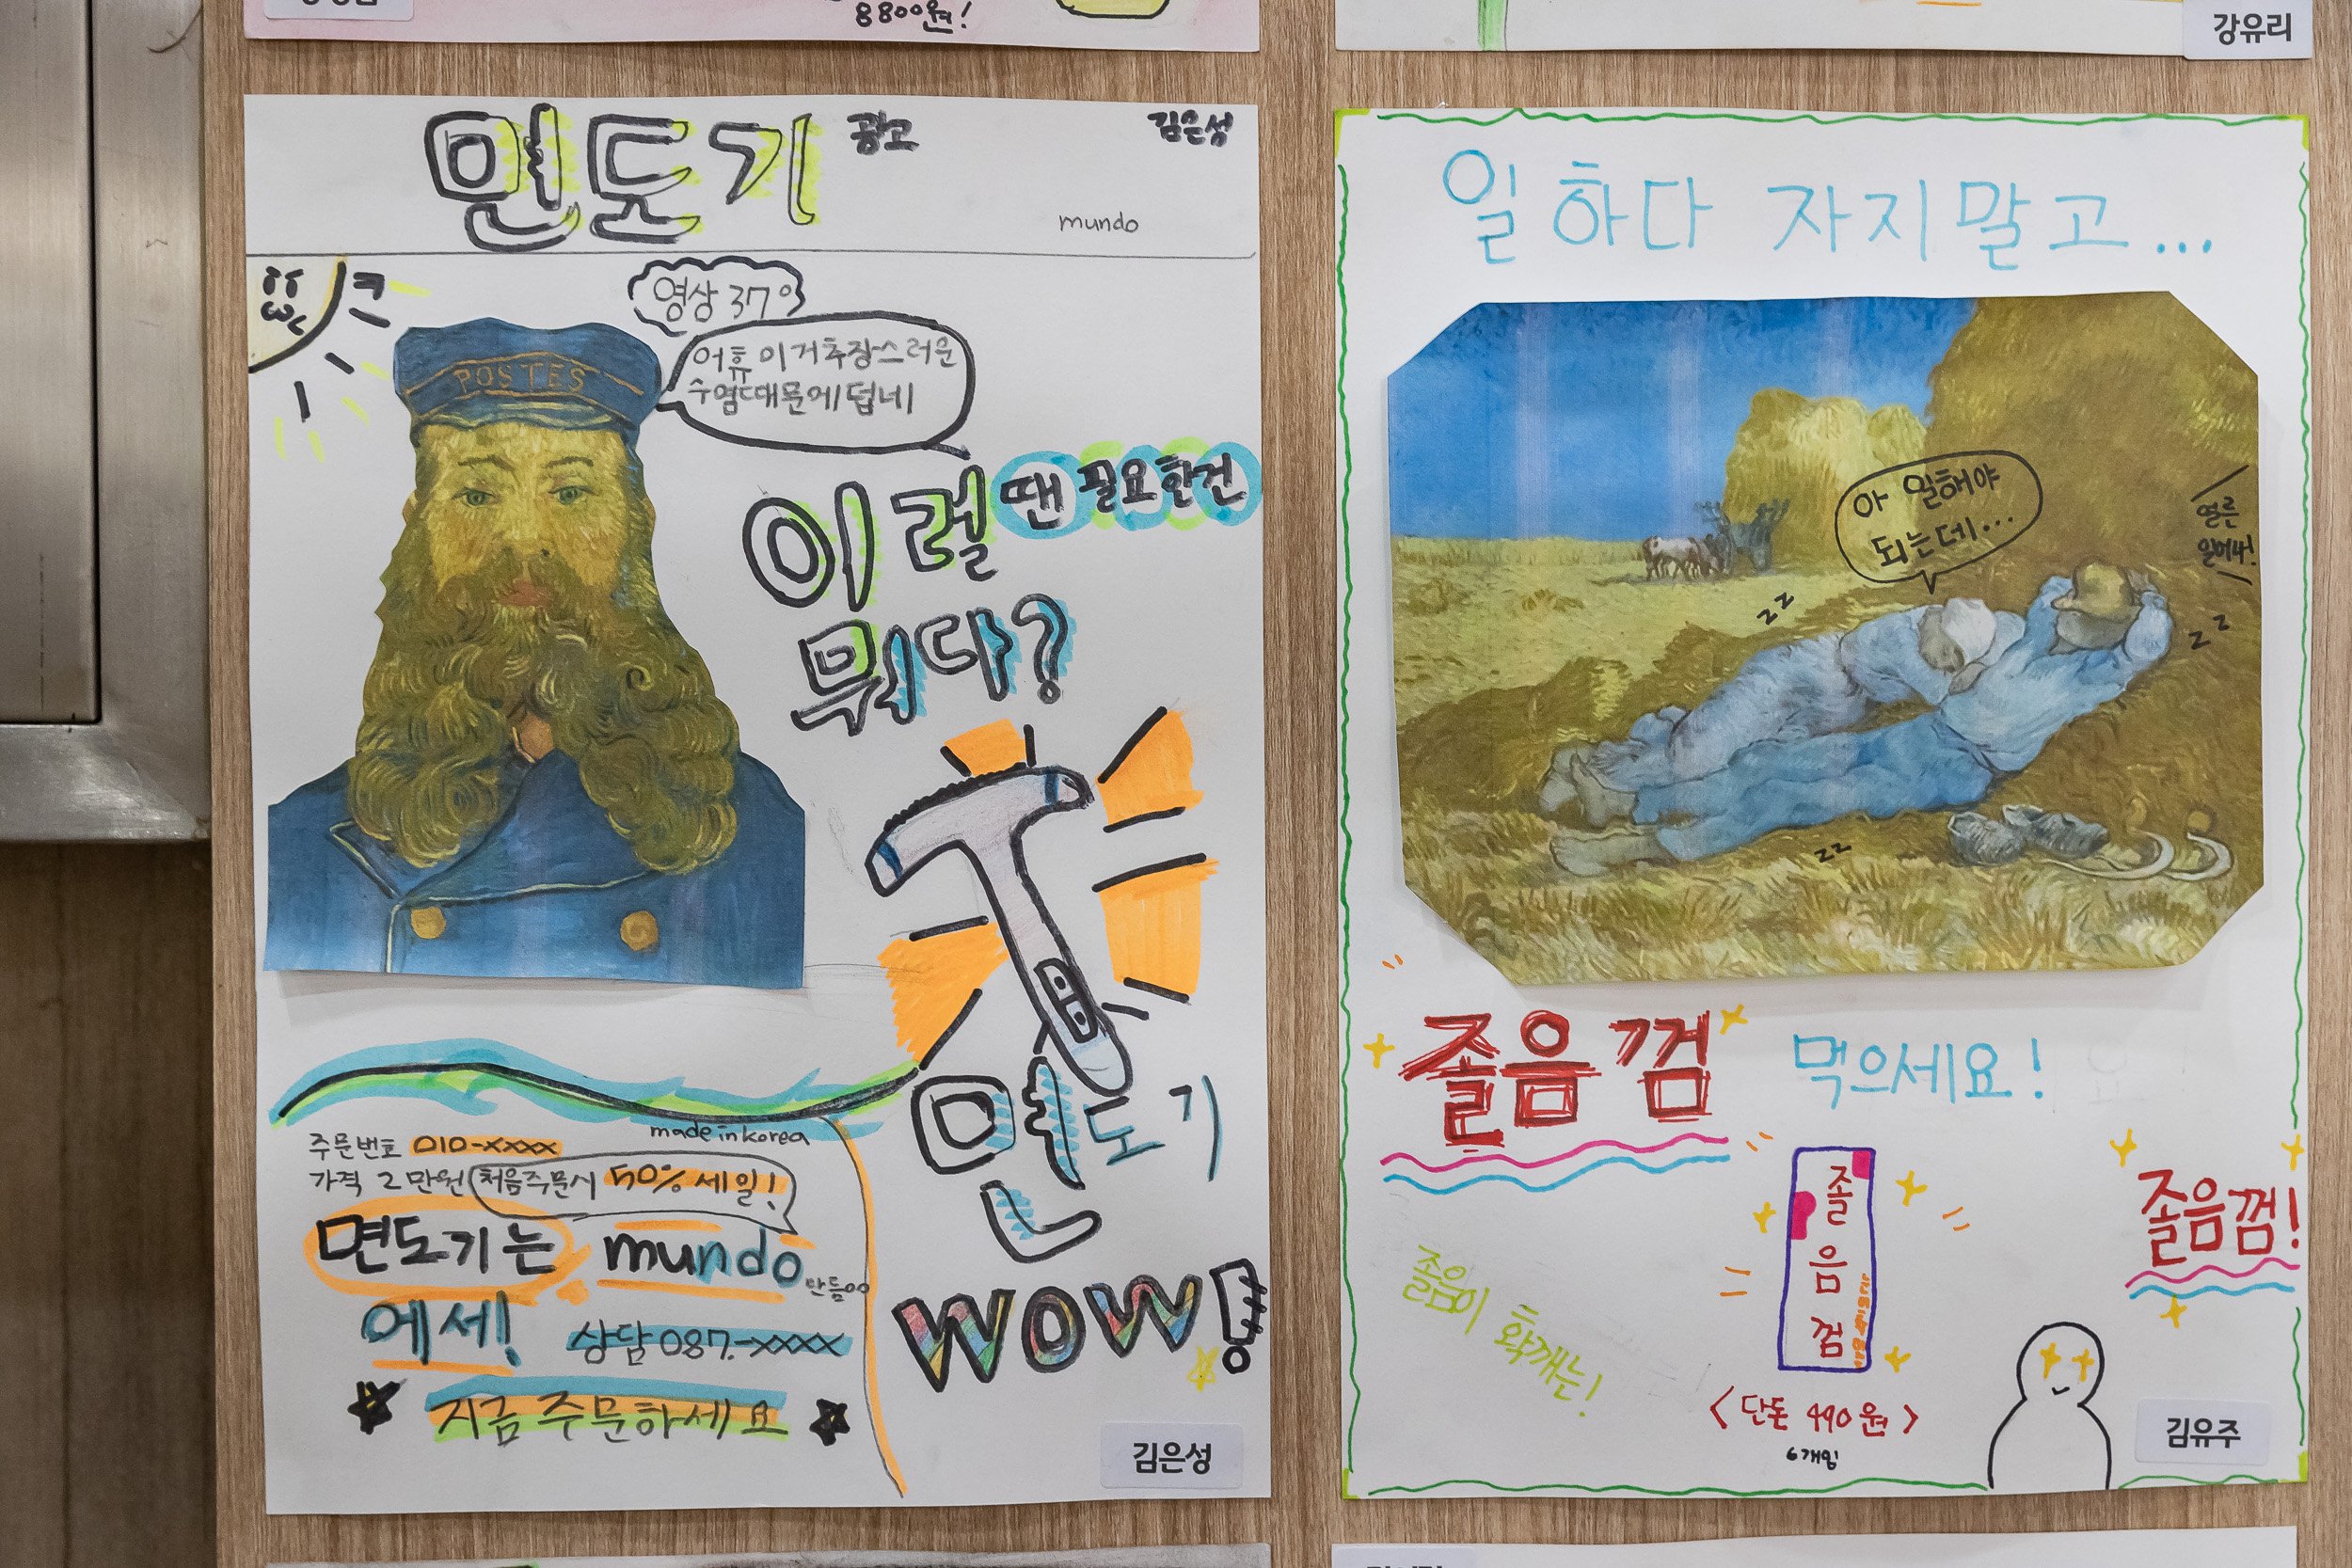 8800원!
강유리
면도기 광고
김은성
mundo
영상 37°
POSTES
어휴 이 거추장스러운
수염때문에 덥네
이럴 땐 필요한건
뭐다?
면도기
WOW!
made in korea
주문번호 010-xxxx
가격 2만원 처음주문시 50% 세일!
면도기는 mundo
만듬
에세!
상담 087.-xxxx
지금 주문하세요
김은성
일하다 자지말고...
아 일해야
되는데...
얼른
일어나!
zz
zz
zz
졸음껌 먹으세요!
졸음껌
졸음껌!
졸음이 확깨는!
<단돈 490원>
6개입
김유주